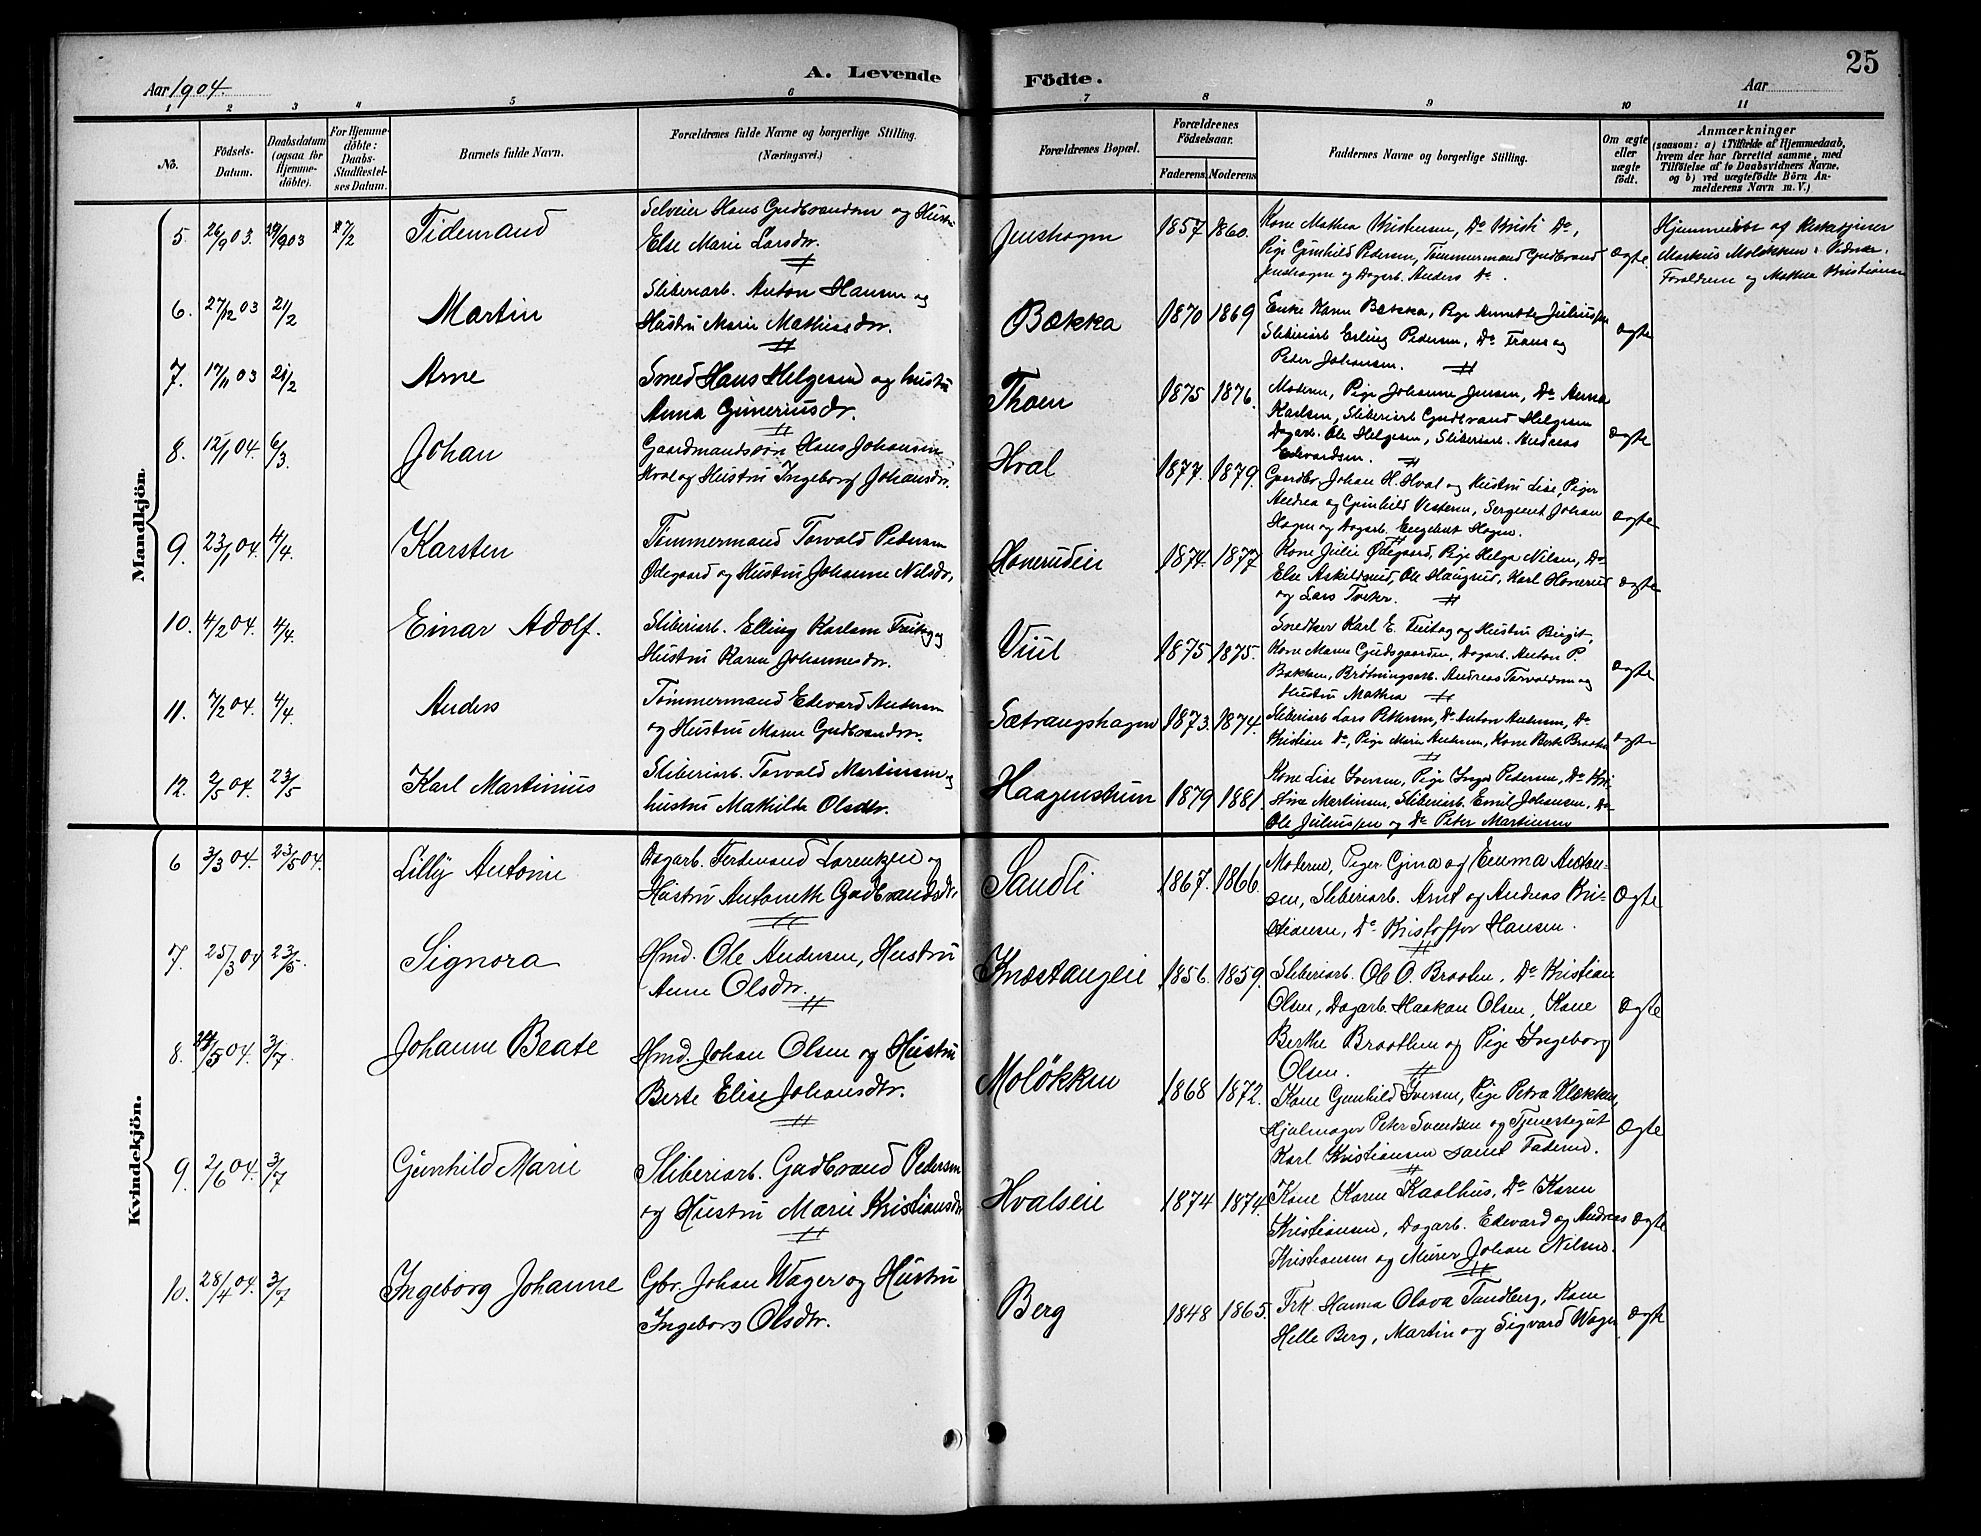 25
Aar 1904.
A. Levende
Födte.
Aar
1 2 3 4 5 6
7 8 9 10 11
No.
Födsels-
Datum.
Daabsdatum
(ogsaa for
Hjemme-
döbte).
For Hjemme-
döbte:
Daabs-
Stadfæstel-
ses Datum.
Barnets fulde Navn.
Forældrenes fulde Navne og borgerlige Stilling.
(Næringsvei.)
Forældrenes Bopæl.
Forældrenes
Födselsaar.
Faderens. Moderens.
Faddernes Navne og borgerlige Stilling.
Om ægte
eller
uægte
födt.
Anmærkninger
(saasom: a) i Tilfælde af Hjemmedaab,
hvem der har forrettet samme, med
Tilföielse af to Daabsvidners Navne,
og b) ved uægtefödte Börn An-
melderens Navn m. V.)
Mandkjön.
5. 26/9 03. 29/9 03 7/2 Tidemand
Selveier Hans Gudbrandsen og Hustru
Else Marie Larsdr.
Jenshagen 1857 1860.
Kone Mathea Kristensen, Do Kristi Do,
Pige Gunhild Pedersen, Tømmermand Gudbrand
Jenshagen og Dagarb. Anders Do.
ægte.
Hjemmedøbt af Kirkesanger
Markus Moløkken: Vidner:
Forældrene og Mathea Kristiansen
6. 27/12 03 21/2 Martin
Sliberiarb. Anton Hansen og
Hustru Marie Mathisdr.
Bækka 1870 1869
Enke Karen Bækka, Pige Annette Juliussen
Sliberiarb. Erling Pedersen, Do Frans og
Peder Johansen.
ægte
7. 17/11 03 21/2 Arne
Smed Hans Helgesen og hustru
Anna Guneriusdr.
Thoen 1875 1876.
Moderen, Pige Johanne Jensen, Do Anna
Karlsen, Sliberiarb. Gudbrand Helgesen
Dagarb. Ole Helgesen, Sliberiarb. Andreas
Edvardsen.
ægte
8. 12/1 04. 6/3. Johan
Gaardmandssøn Hans Johansen
Hval og Hustru Ingeborg Johansdr.
Hval 1877. 1879.
Gaardbr. Johan H. Hval og Hustru Lise, Piger
Andrea og Gunhild Vestern, Sergent Johan
Hagen og Dagarb. Engebret Hagen.
ægte
9. 23/1 04. 4/4. Karsten
Tømmermand Torvald Pedersen
Ødegaard og Hustru Johanne Nilsdr.
Honerudeie 1874. 1877
Kone Julie Ødegaard, Pige Helga Nilsen, Do
Else Askildsrud, Ole Haugrud, Karl Honerud
og Lars Tveter.
ægte
10. 4/2 04. 4/4. Einar Adolf.
Sliberiarb. Elling Karlsen Freitag og
Hustru Karen Johannesdr.
Viul 1875 1875.
Snedker Karl E. Freitag og Hustru Birgit,
Kone Maren Gudsgaarden, Dagarb. Anton P.
Bakken, Brøtningsarb. Andreas Torvaldsen og
Hustru Mathea
ægte
11. 7/2 04. 4/4. Anders
Tømmermand Edvard Andersen
og Hustru Maren Gudbrandsdr.
Sætrangshagen 1873. 1874.
Sliberiarb. Lars Pettersen, Do Anton Andersen, Do
Kristian Do, Pige Marie Andersen, Kone Berte Braaten
ægte
12. 2/5 04. 23/5 Karl Martinius
Sliberiarb. Torvald Martinsen og
hustru Mathilde Olsdtr.
Haagenstrum 1879 1881.
Kone Lise Iversen, Pige Inga Pedersen, Do Kri-
stine Martinsen, Sliberiarb. Emil Johansen, Do
Ole Juliussen og Do Peter Martinsen
Kvindekjön.
6 3/3 04. 23/5 04. Lilly Antonie
Dagarb. Ferdinand Lorentzen og
Hustru Antonette Gudbrandsdr.
Sandli 1867. 1866.
Moderen, Piger Gina og Emma Anton-
sen, Sliberiarb. Arnt og Andreas Kri-
stiansen, Do Kristoffer Hansen.
Ægte
7. 25/3 04 23/5. Signora
Hmd. Ole Andersen, Hustru
Anne Olsdtr.
Knestangeie 1856. 1859.
Sliberiarb. Ole O. Braaten, Do Kristian
Olsen, Dagarb. Haakon Olsen, Kone
Berthe Braathen og Pige Ingeborg
Olsen.
Ægte
8. /5 04. 3/7. Johanne Beate
Hmd. Johan Olsen og Hustru
Berte Elise Johansdtr.
Moløkken 1868 1872.
Kone Gunhild Iversen, Pige Petra Klækken,
Hjulmager Peter Svendsen og Tjenestegut
Karl Kristiansen samt Faderen.
Ægte
9. 2/6 04. 3/7 Gunhild Marie
Sliberiarb. Gudbrand Pedersen
og Hustru Marie Kristiansdr.
Hvalseie 1874 1874.
Kone Karen Kaalhus, Do Karen
Kristiansen, Dagarb. Edevard og Andreas
Kristiansen og Murer Johan Nilsen.
Ægte
10. 28/4 04. 3/7 Ingeborg Johanne
Gbr. Johan Wager og Hustru
Ingeborg Olsdtr.
Berg 1848 1865.
Frk. Hanna Olava Tandberg, Kone
Helle Berg, Martin og Sigvard Wager
Ægte